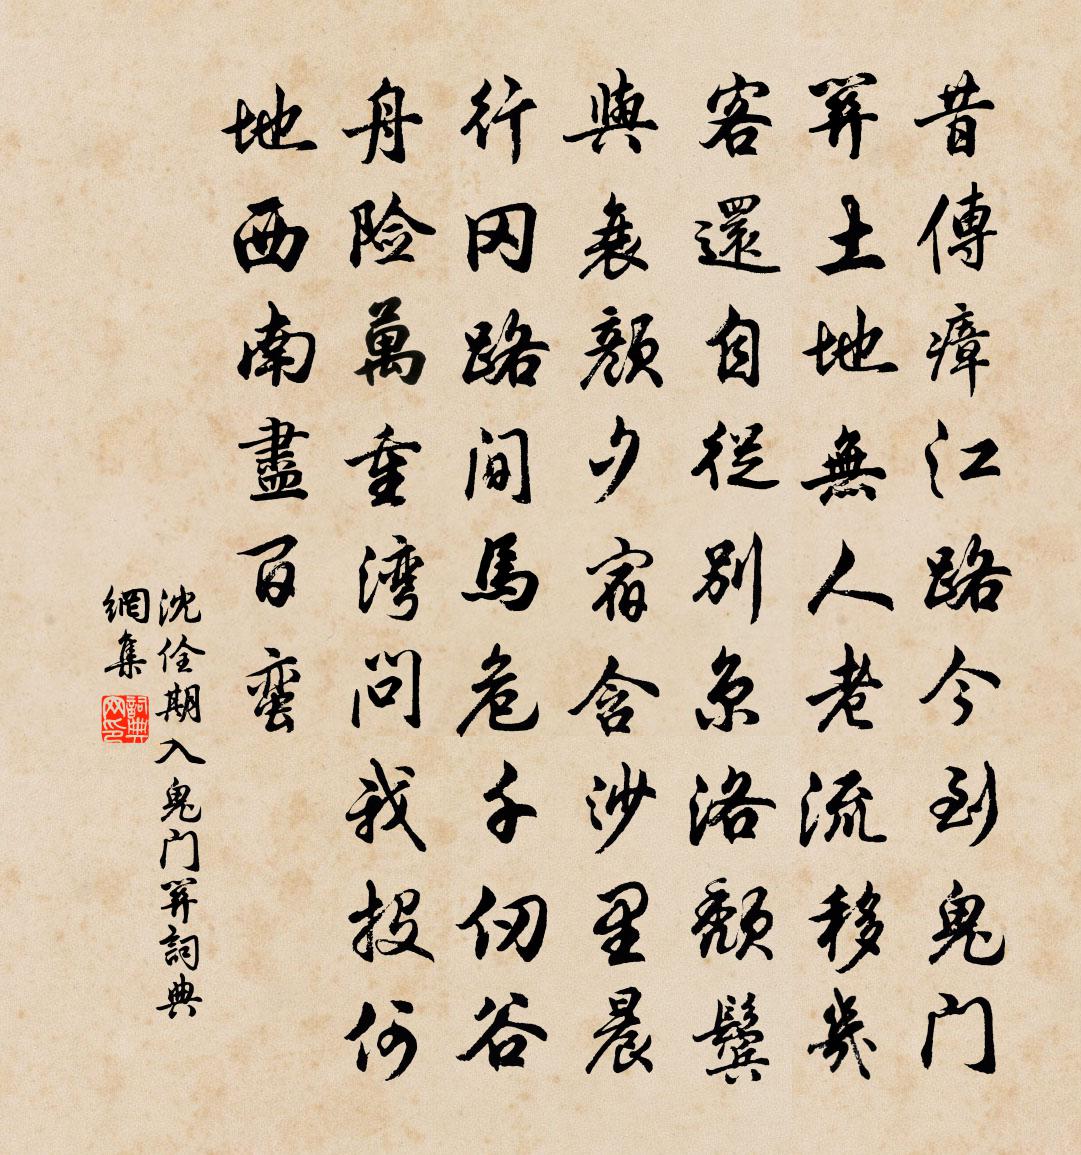 昔傳瘴江路今到鬼门
關土地無人老流移幾
客還自從別京洛頹鬢
與衰顏夕宿含沙里晨
行冈路间馬危千仞谷
舟险萬重湾问我投何
地西南盡百蛮
沈佺期入鬼门關詞典
網集
詞典网印